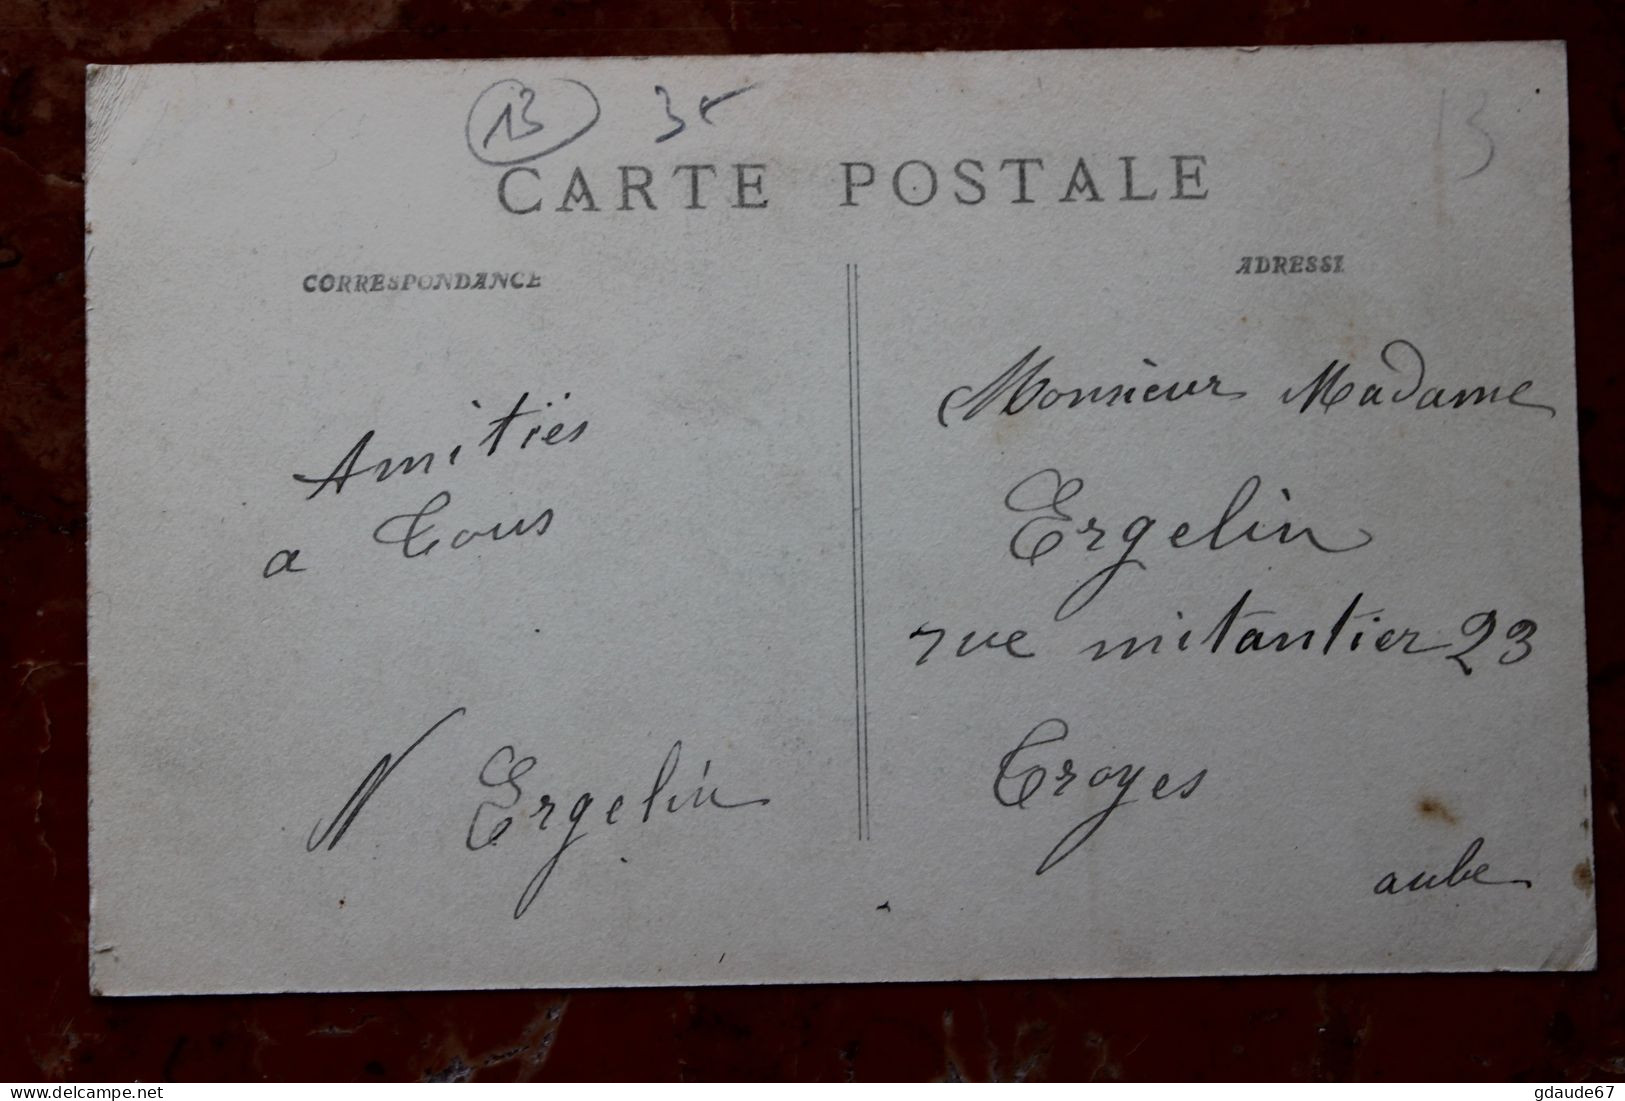 13 35
13
CARTE POSTALE
CORRESPONDANCE
Amitiés
a Tous
N Ergelin
ADRESSE
Monsieur Madame
Ergelin
rue mitantier 23
Troyes
aube
delcampe.net
gdaude67